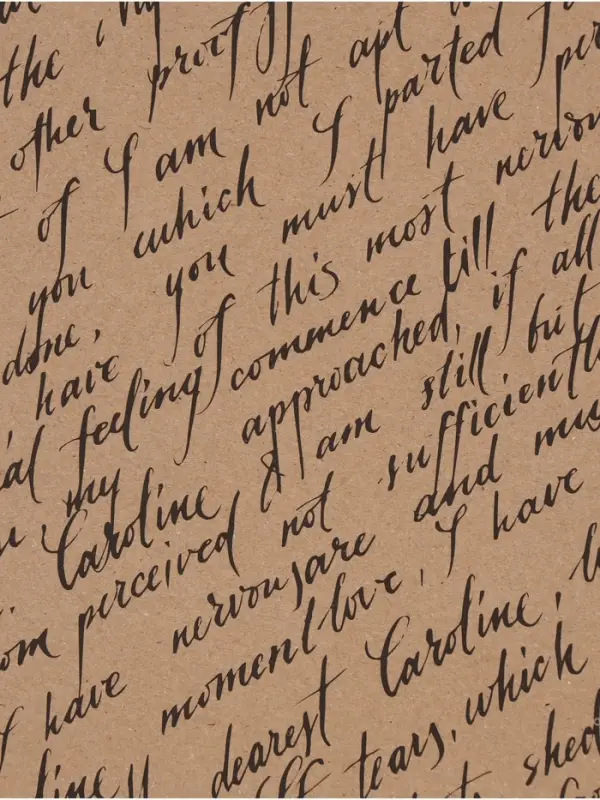 the
other proof
of I am not apt
you which I parted
done, you must have per
, have of this most nervou
ial feeling commence till the
n, my approached, if all
Caroline I am still, but
om perceived not sufficiently
I have nervous are and mus
moment love, I have
dearest Caroline,
tears, which
shed